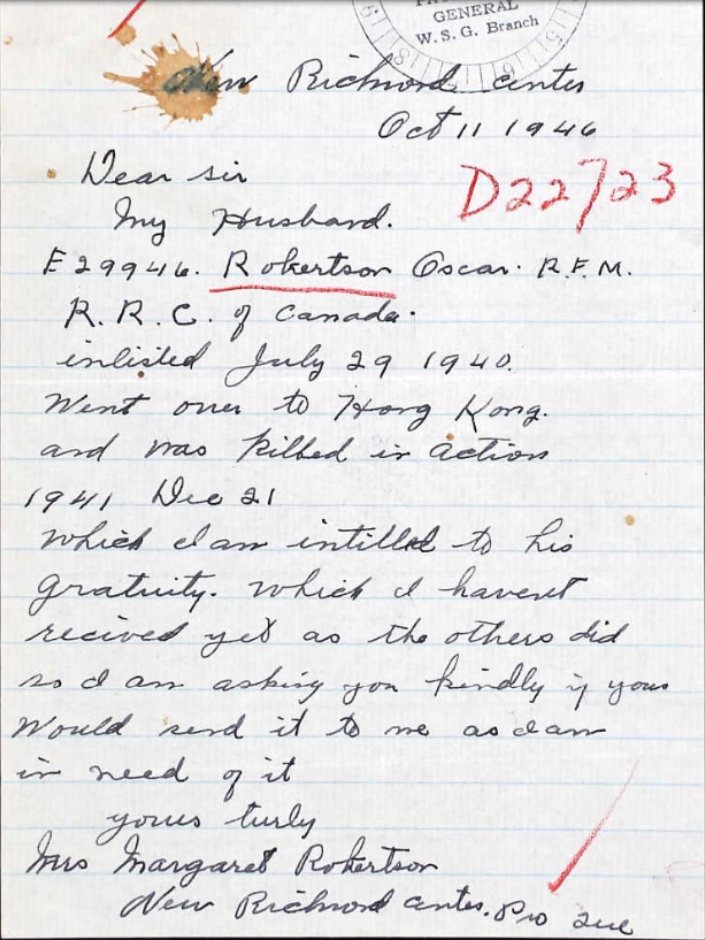 GENERAL
W.S.G. Branch
New Richmond center
Oct 11 1946
Dear sir
D22723
My Husband.
E 29946. Robertson Oscar. R.F.M.
R. R. C. of Canada.
inlisted July 29 1940.
Went over to Hong Kong.
and was killed in action
1941 Dec 21
Which I am intilled to his
gratuity. Which I havent
recived yet as the others did
so I am asking you kindly if you
Would send it to me as I am
in need of it
yours turly
Mrs Margaret Robertson
New Richmond center. Pro Que